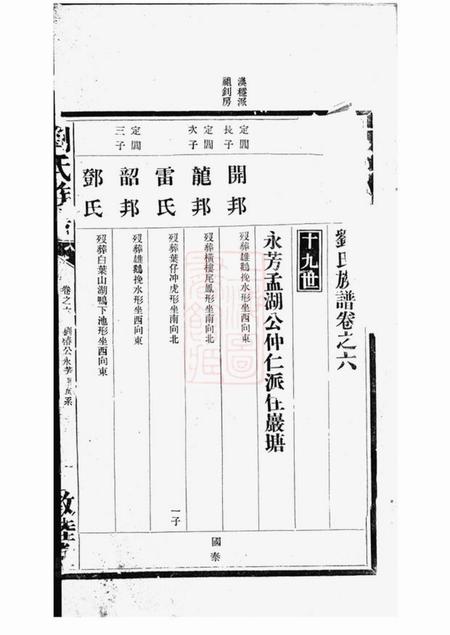 劉氏族譜卷之六
永芳孟湖公仲仁派住巖塘
十九世
漢樓派
祖釗房
定閶長子
開邦
歿葬雄鷄挽水形坐西向東
定閶次子
龍邦
歿葬橫樓尾鳳形坐南向北
雷氏
歿葬葉仔冲虎形坐南向北
一子
國泰
定閶三子
韶邦
歿葬雄鷄挽水形坐西向東
鄧氏
歿葬白葉山湖鴨下池形坐西向東
劉氏族
卷之六
敦睦堂